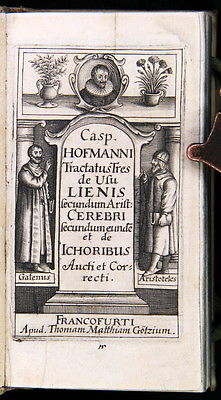 Casp.
HOFMANNI
Tractatus Tres
de Usu
LIENIS
secundum Arist:
CEREBRI
secundum eunde
et de
ICHORIBUS
Aucti et Cor-
recti.
Galenus
Aristoteles
FRANCOFURTI
Apud. Thomam Matthiam Götzium.